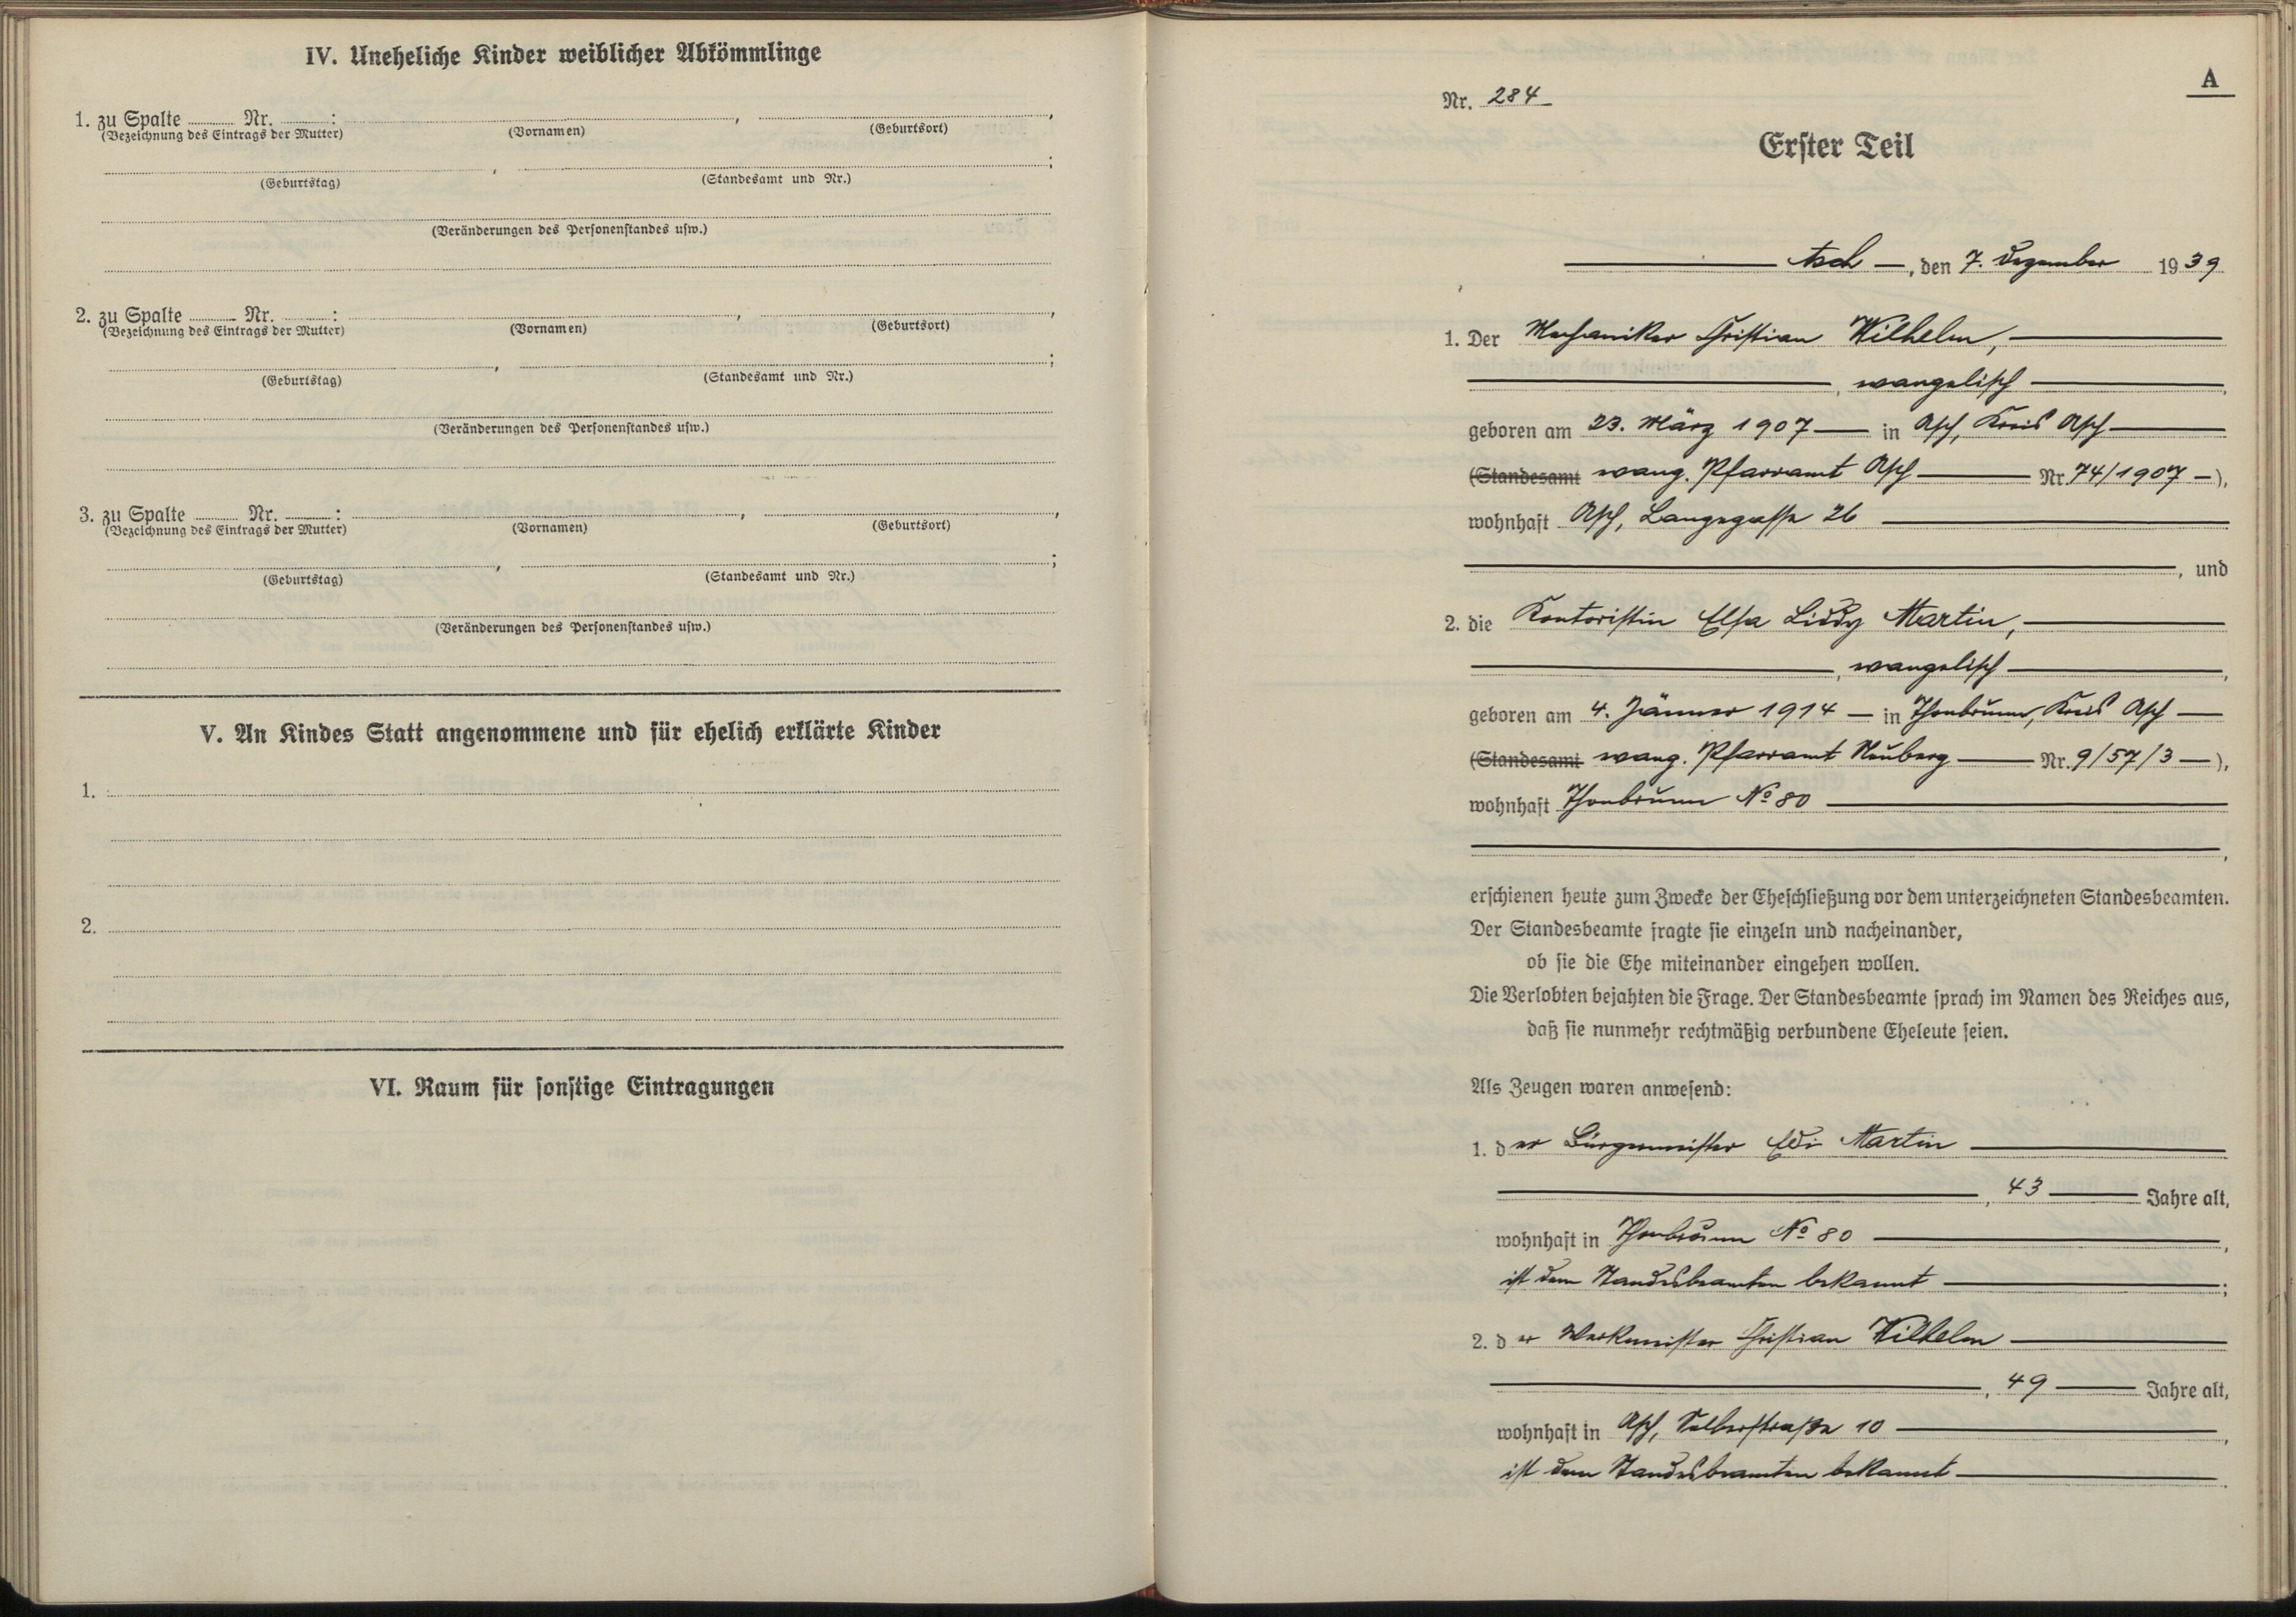 IV. Uneheliche Kinder weiblicher Abkömmlinge
1. zu Spalte ........ Nr. ........ : ........ , ........ ,
(Bezeichnung des Eintrags der Mutter) (Vornamen) (Geburtsort)
........ , ........ ;
(Geburtstag) (Standesamt und Nr.)
(Veränderungen des Personenstandes usw.)
2. zu Spalte ........ Nr. ........ : ........ , ........ ,
(Bezeichnung des Eintrags der Mutter) (Vornamen) (Geburtsort)
........ , ........ ;
(Geburtstag) (Standesamt und Nr.)
(Veränderungen des Personenstandes usw.)
3. zu Spalte ........ Nr. ........ : ........ , ........ ,
(Bezeichnung des Eintrags der Mutter) (Vornamen) (Geburtsort)
........ , ........ ;
(Geburtstag) (Standesamt und Nr.)
(Veränderungen des Personenstandes usw.)
V. An Kindes Statt angenommene und für ehelich erklärte Kinder
1.
2.
VI. Raum für sonstige Eintragungen
A
Nr. 284
Erster Teil
Asch, den 7. Dezember 1939
1. Der Mechaniker Christian Wilhelm,
, evangelisch ,
geboren am 23. März 1907 in Asch, Kreis Asch
(Standesamt evang. Pfarramt Asch Nr. 74/1907),
wohnhaft Asch, Langegasse 26
, und
2. die Kontoristin Elsa Liddy Martin,
, evangelisch ,
geboren am 4. Jänner 1914 in Thonbrunn, Kreis Asch
(Standesamt evang. Pfarramt Neuberg Nr. 9/57/3),
wohnhaft Thonbrunn No 80
,
erschienen heute zum Zwecke der Eheschließung vor dem unterzeichneten Standesbeamten.
Der Standesbeamte fragte sie einzeln und nacheinander,
ob sie die Ehe miteinander eingehen wollen.
Die Verlobten bejahten die Frage. Der Standesbeamte sprach im Namen des Reiches aus,
daß sie nunmehr rechtmäßig verbundene Eheleute seien.
Als Zeugen waren anwesend:
1. der Bürgermeister Edi Martin
, 43 Jahre alt,
wohnhaft in Thonbrunn No 80 ,
ist dem Standesbeamten bekannt ;
2. der Werkmeister Christian Wilhelm
, 49 Jahre alt,
wohnhaft in Asch, Selberstraße 10 ,
ist dem Standesbeamten bekannt .